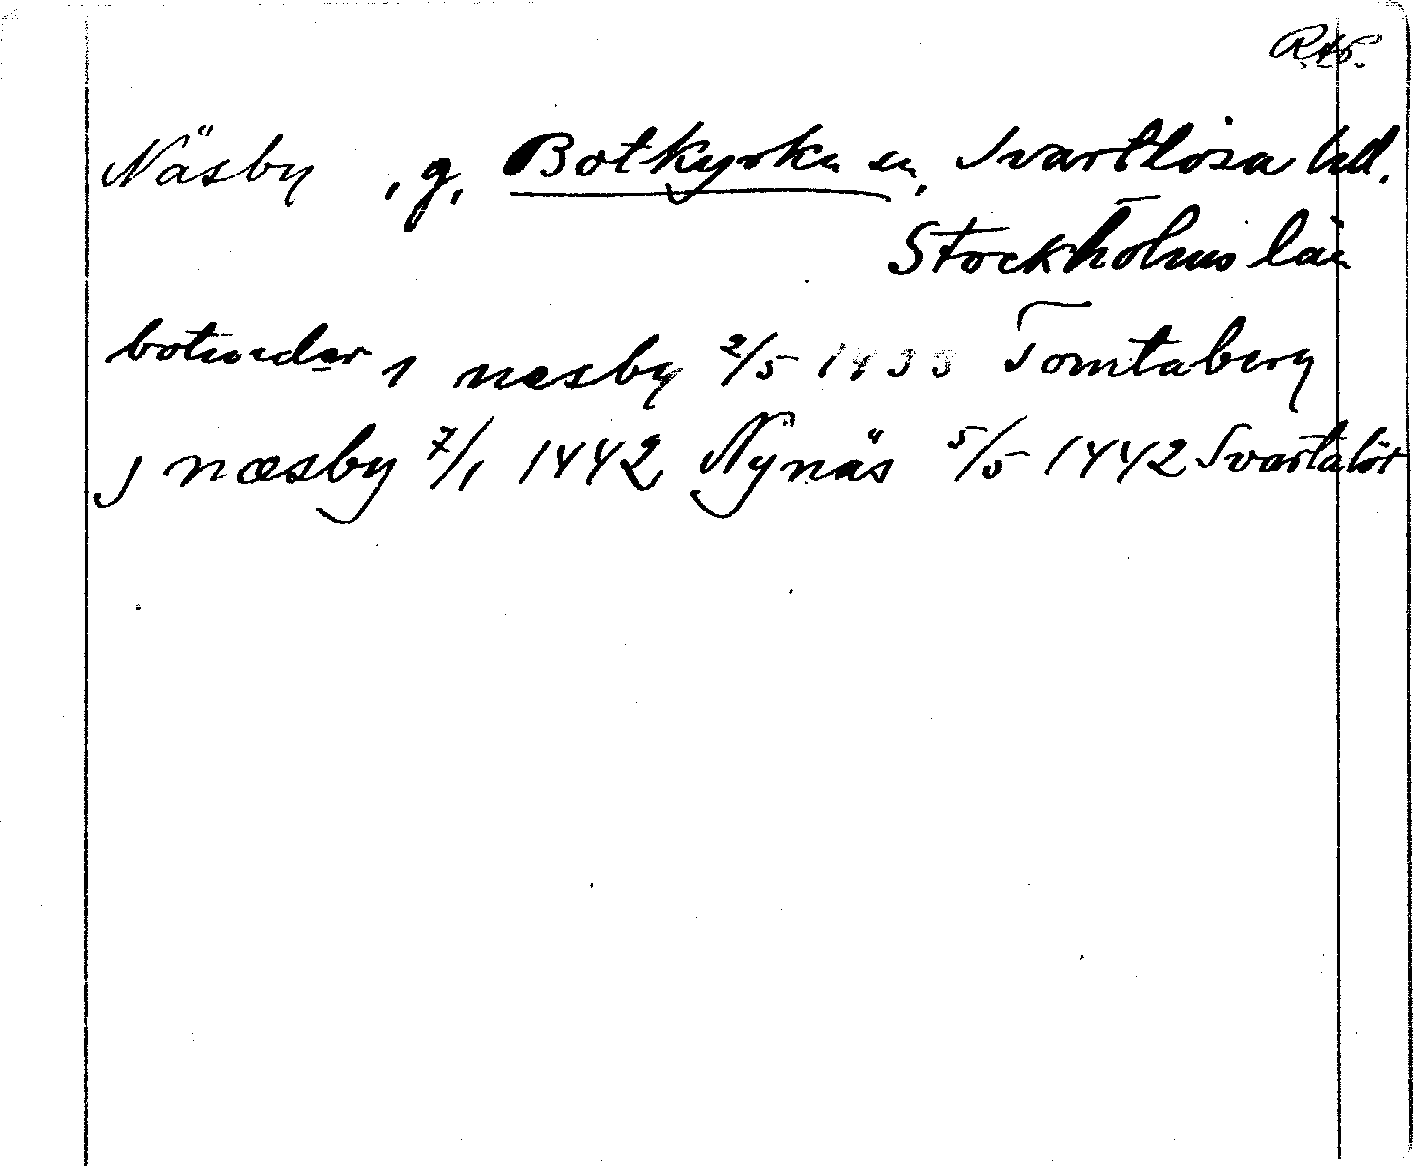 Näsby , g, Botkyrka sn, Svartlösa hd.
Stockholms län
botwedær i næsby 2/5 1433 Tomtaberg
j næsby 7/1 1442 Nynäs 5/5 1442 Svartalöt